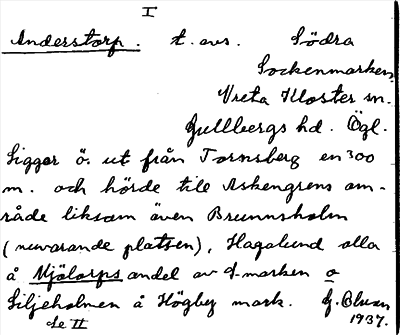 I
Anderstorp. t. avs. Södra
Sockenmarken,
Vreta Kloster sn.
Gullbergs hd. Ögl.
Ligger ö. ut från Tornsberg en 300
m. och hörde till Askengrens om-
råde liksom även Brunnsholm
(nuvarande platsen), Hagalund alla
å Mjölorps andel av s. marken o
Liljeholmen å Högby mark.
Se II 1937.